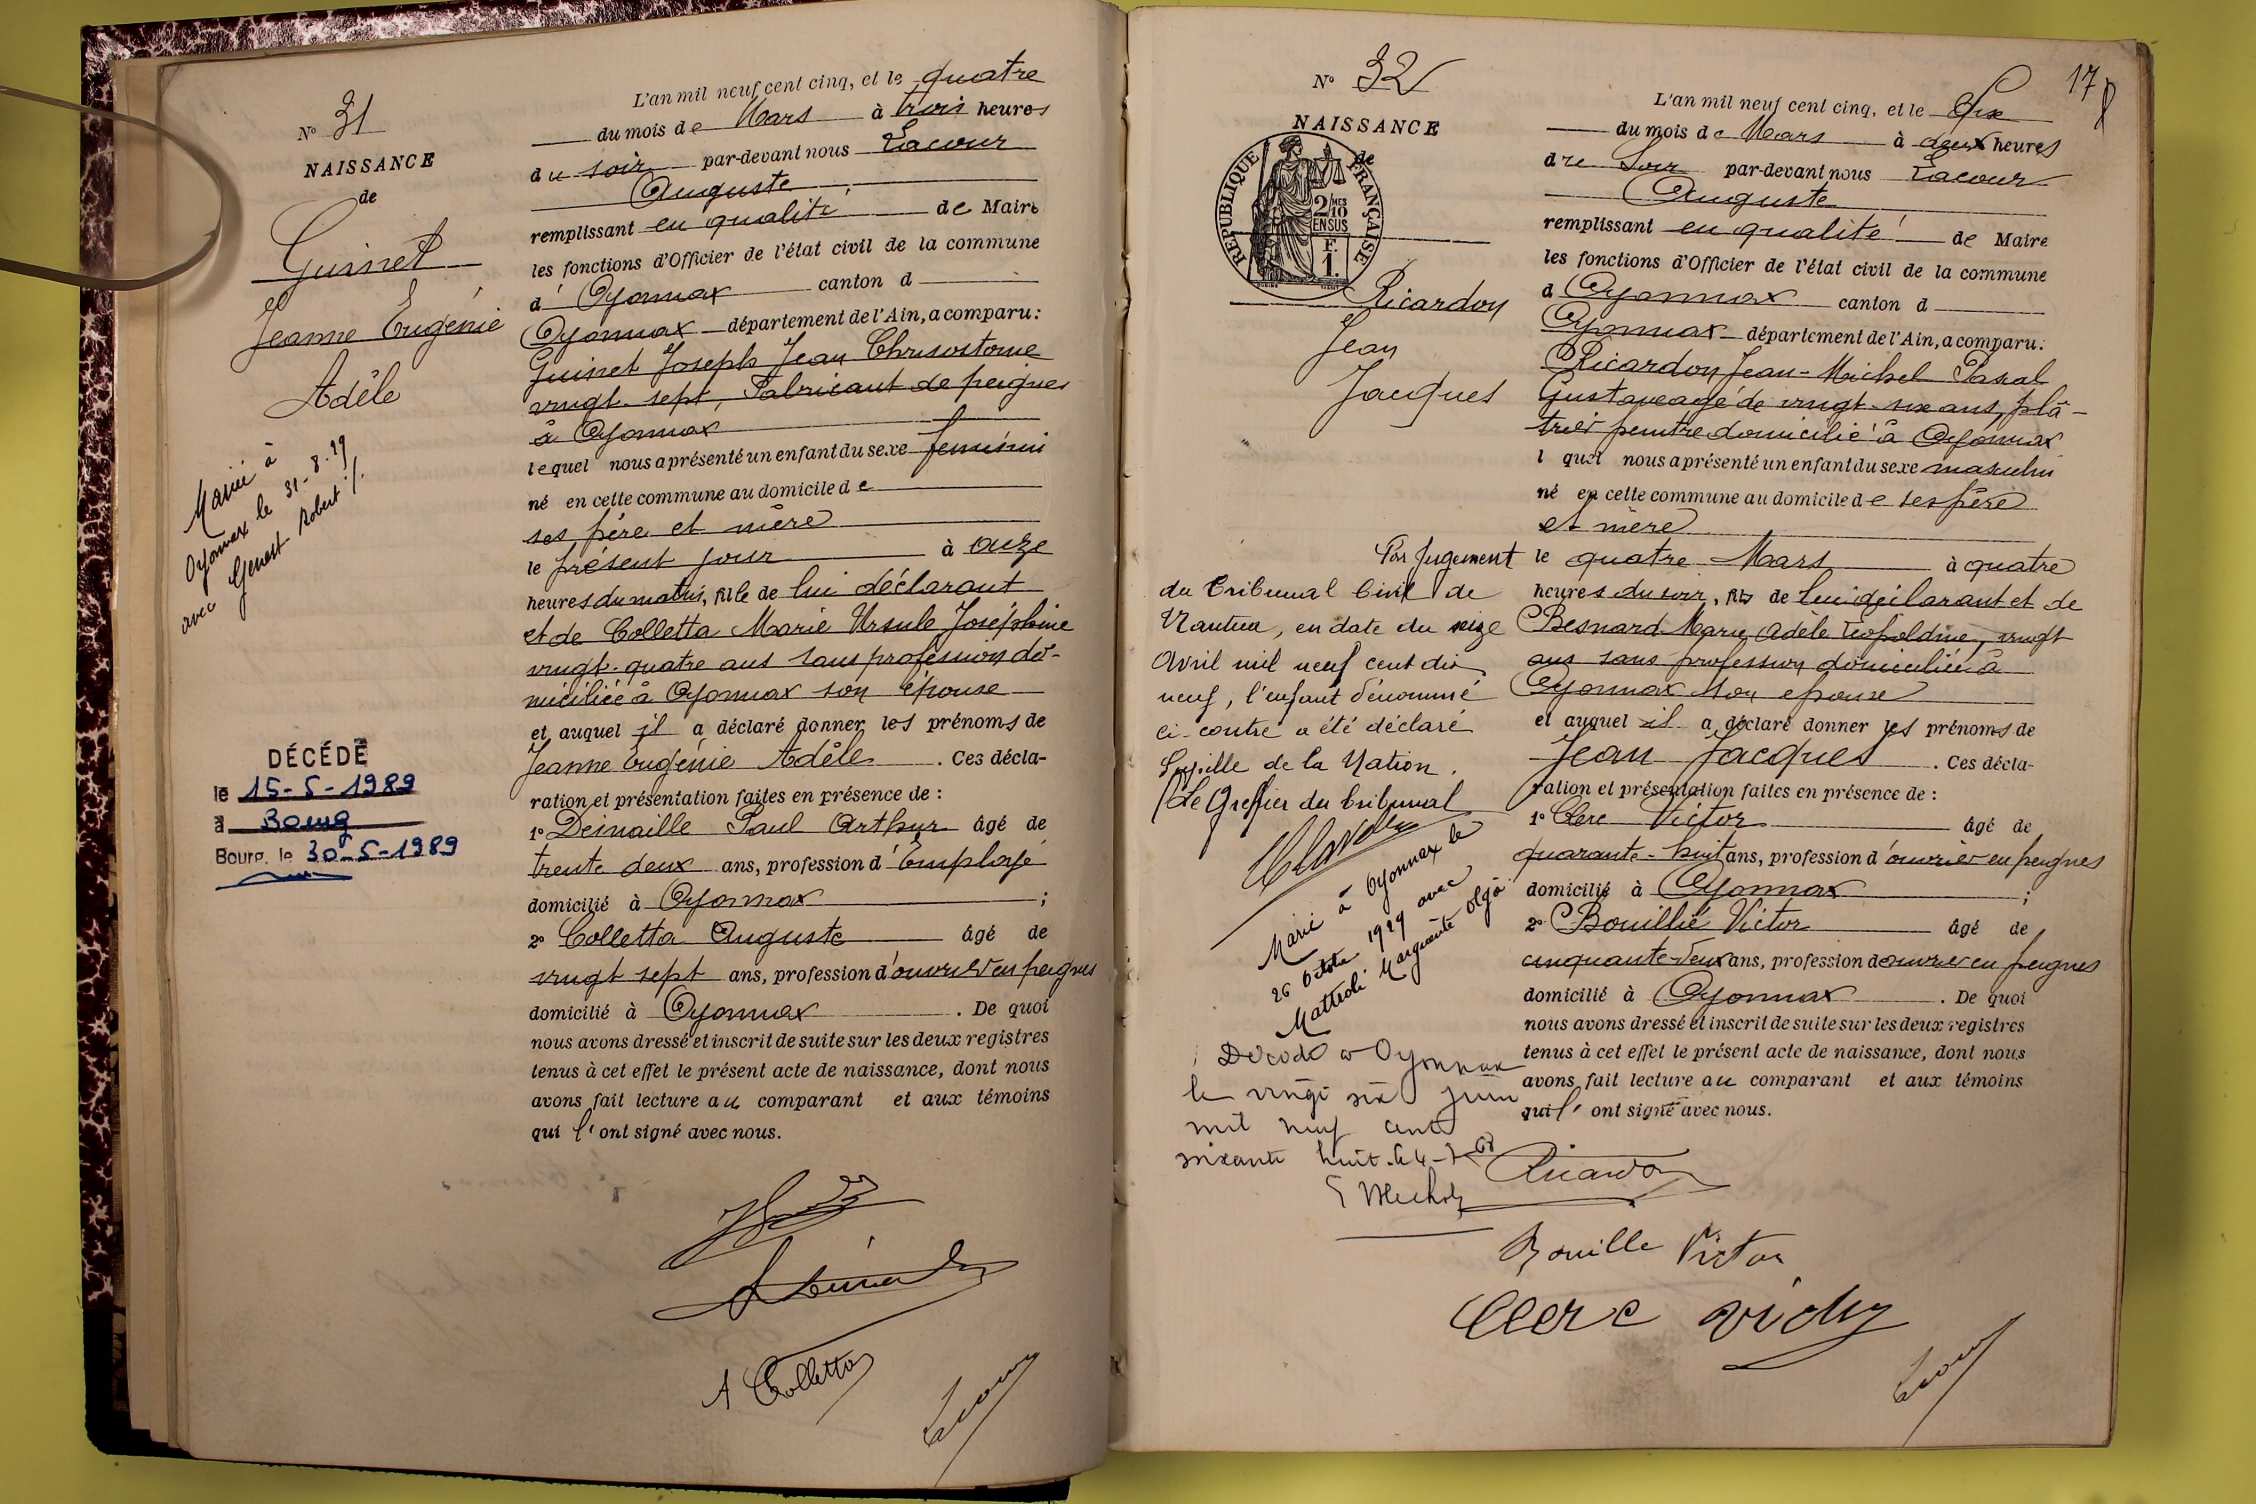 N° 31
NAISSANCE
de
Guinet
Jeanne Eugénie
Adèle
Marié à
Oyonnax le 31-8-29
avec Genest Robert
DÉCÉDÉ
le 15-5-1989
à Bourg
Bourg, le 30-5-1989
L'an mil neuf cent cinq, et le quatre
du mois de Mars à trois heures
du soir par-devant nous Lacour
Auguste
remplissant en qualité de Maire
les fonctions d'Officier de l'état civil de la commune
d' Oyonnax canton d
Oyonnax département de l'Ain, a comparu:
Guinet Joseph Jean Chrisostome
vingt-sept, Fabricant de peignes
à Oyonnax
lequel nous a présenté un enfant du sexe féminin
né en cette commune au domicile de
ses père et mère
le présent jour à onze
heures du matin, fille de lui déclarant
et de Colletta Marie Ursule Joséphine
vingt-quatre ans sans profession do-
miciliée à Oyonnax son épouse
et auquel il a déclaré donner les prénoms de
Jeanne Eugénie Adèle. Ces décla-
ration et présentation faites en présence de :
1° Paul Arthur âgé de
trente deux ans, profession d'Employé
domicilié à Oyonnax ;
2° Colletta Auguste âgé de
vingt sept ans, profession d'ouvrier en peignes
domicilié à Oyonnax. De quoi
nous avons dressé et inscrit de suite sur les deux registres
tenus à cet effet le présent acte de naissance, dont nous
avons fait lecture au comparant et aux témoins
qui l'ont signé avec nous.
A Colletta
17
N° 32
NAISSANCE
de
RÉPUBLIQUE FRANÇAISE
2/10
MES
EN SUS
F.
1.
Ricardon
Jean
Jacques
Par Jugement
du Tribunal Civil de
Nantua, en date du seize
Avril mil neuf cent dix
neuf, l'enfant dénommé
ci-contre a été déclaré
Pupille de la Nation.
Le Greffier du tribunal
Marié à Oyonnax le
26 Octobre 1929 avec
Marguerite Olga
Décédé à Oyonnax
le vingt six juin
mil neuf cent
soixante huit. le 4-7-68
L'an mil neuf cent cinq, et le Six
du mois de Mars à deux heures
du Soir par-devant nous Lacour
Auguste
remplissant en qualité de Maire
les fonctions d'Officier de l'état civil de la commune
d Oyonnax canton d
Oyonnax département de l'Ain, a comparu:
Ricardon Jean-Michel Pascal
Gustave agé de vingt-six ans, plâ-
trier peintre domicilié à Oyonnax
l quel nous a présenté un enfant du sexe masculin
né en cette commune au domicile de ses père
et mère
le quatre Mars à quatre
heures du soir, fils de lui déclarant et de
Besnard Marie Adèle Léopoldine, vingt
ans sans profession domiciliée à
Oyonnax son épouse
et auquel il a déclaré donner les prénoms de
Jean Jacques. Ces décla-
ration et présentation faites en présence de :
1° Clerc Victor âgé de
quarante-huit ans, profession d'ouvrier en peignes
domicilié à Oyonnax ;
2° Bouillié Victor âgé de
cinquante-deux ans, profession d'ouvrier en peignes
domicilié à Oyonnax. De quoi
nous avons dressé et inscrit de suite sur les deux registres
tenus à cet effet le présent acte de naissance, dont nous
avons fait lecture au comparant et aux témoins
qui l'ont signé avec nous.
Ricardon
Bouille Victor
Clerc